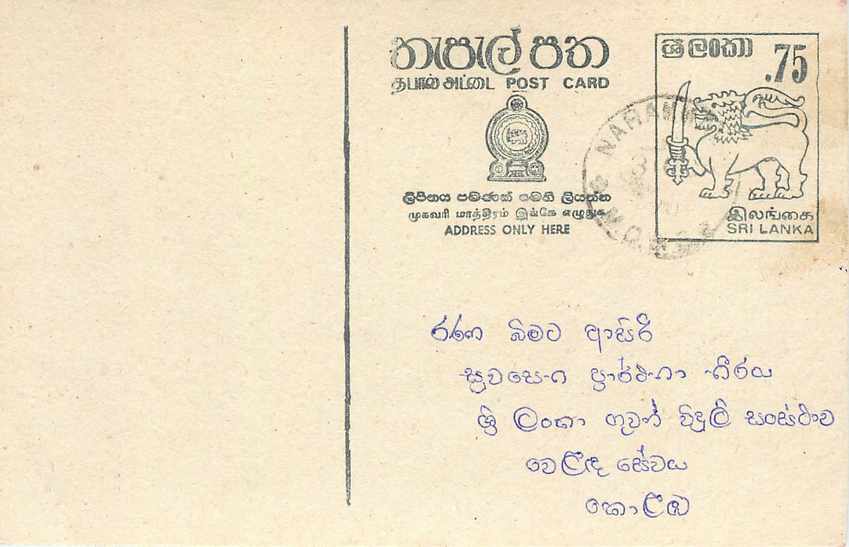 තැපැල් පත
தபால் அட்டை POST CARD
ලිපිනය පමණක් පමණි ලියන්න
முகவரி மாத்திரம் இங்கே எழுதுக
ADDRESS ONLY HERE
ශ්‍රී ලංකා
.75
இலங்கை
SRI LANKA
රණ බිමට ආසිරි
සුවසෙත ප්‍රාර්ථනා තීරය
ශ්‍රී ලංකා ගුවන් විදුලි සංස්ථාව
වෙළඳ සේවය
කොළඹ